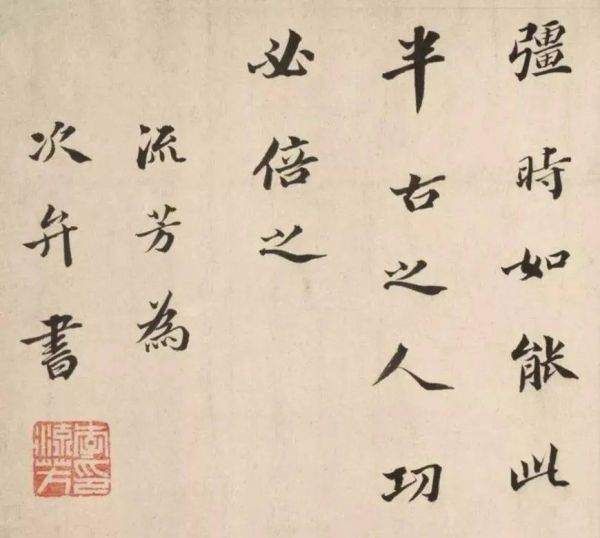 彊時如能此
半古之人功
必倍之
流芳為
次弁書
李印
流芳